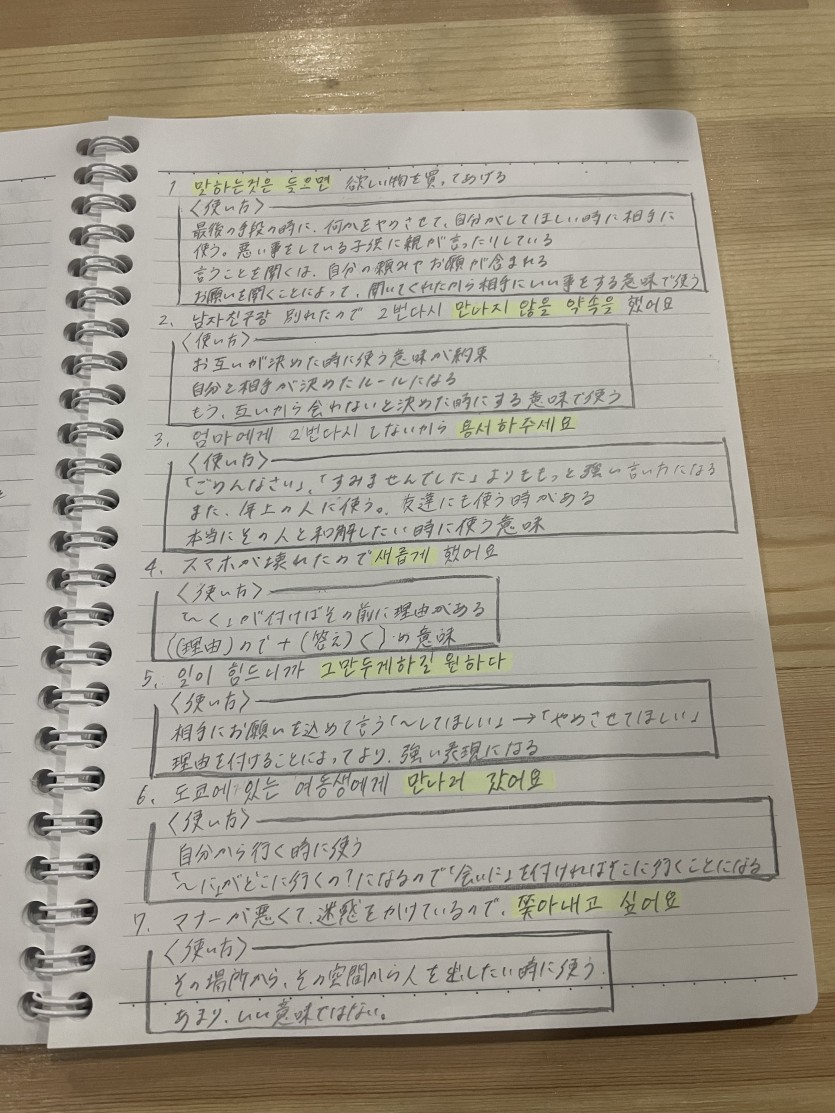 1 말하는것은 들으면 欲しい物を買ってあげる
〈使い方〉
最後の手段の時に、何かをやめさせて、自分がしてほしい時に相手に
使う。悪い事をしている子供に親が言ったりしている
言うことを聞くは、自分の頼みやお願が含まれる
お願いを聞くことによって、聞いてくれたから相手にいい事をする意味で使う
2. 남자친구랑 別れたので 2번다시 만나지 않을 약속을 했어요
〈使い方〉
お互いが決めた時に使う意味が約束
自分と相手が決めたルールになる
もう、互いから会わないと決めた時にする意味で使う
3. 엄마에게 2번다시 しないから 용서하주세요
〈使い方〉
「ごめんなさい」、「すみませんでした」よりももっと強い言い方になる
また、年上の人に使う。友達にも使う時がある
本当にその人と和解したい時に使う意味
4. スマホが壊れたので 새롭게 했어요
〈使い方〉
「~く」が付けばその前に理由がある
((理由)ので+(答え)く)の意味
5. 일이 힘드니까 그만두게하길 원하다
〈使い方〉
相手にお願いを込めて言う「~してほしい」→「やめさせてほしい」
理由を付けることによってより、強い表現になる
6. 도쿄에 있는 여동생에게 만나러 갔어요
〈使い方〉
自分から行く時に使う
「~に」がどこに行くの?になるので「会いに」を付ければそこに行くことになる
7. マナーが悪くて、迷惑をかけているので、쫓아내고 싶어요
〈使い方〉
その場所から、その空間から人を出したい時に使う.
あまり、いい意味ではない。